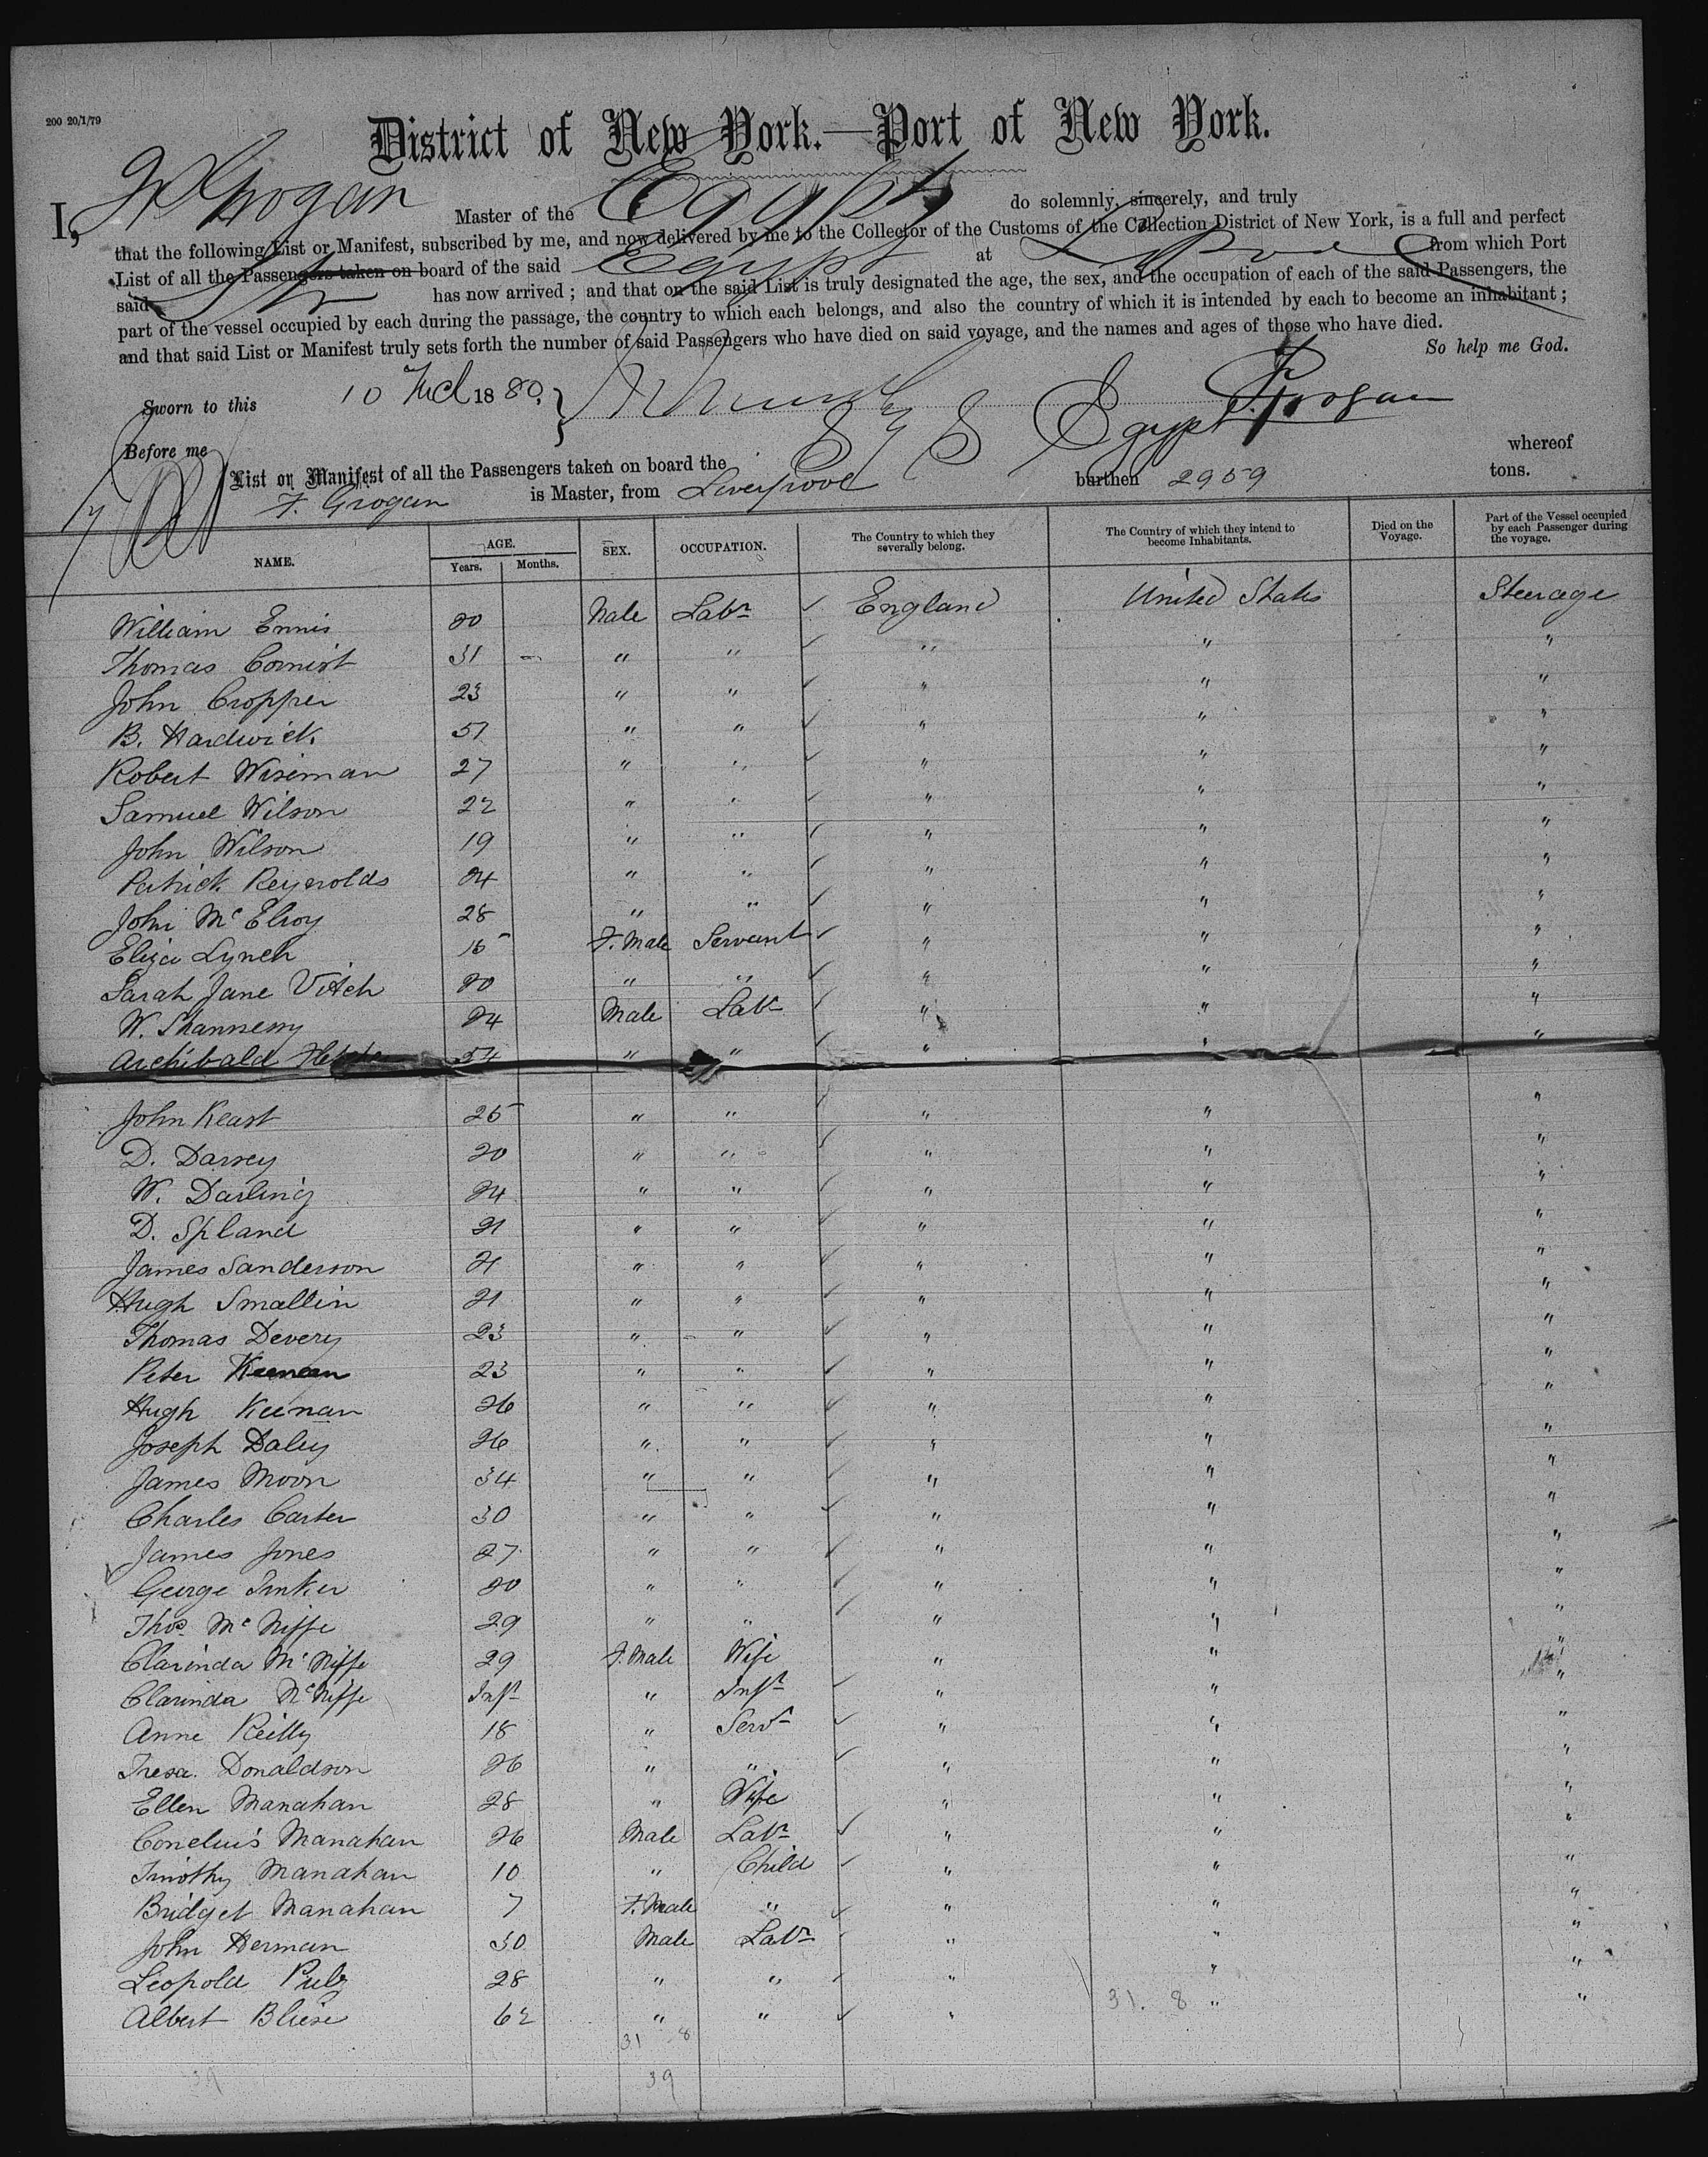 200 20/1/79
District of New York.—Port of New York.
I, F Grogan Master of the Egypt do solemnly, sincerely, and truly
that the following List or Manifest, subscribed by me, and now delivered by me to the Collector of the Customs of the Collection District of New York, is a full and perfect
List of all the Passengers taken on board of the said Egypt at L'pool from which Port
said Str has now arrived; and that on the said List is truly designated the age, the sex, and the occupation of each of the said Passengers, the
part of the vessel occupied by each during the passage, the country to which each belongs, and also the country of which it is intended by each to become an inhabitant;
and that said List or Manifest truly sets forth the number of said Passengers who have died on said voyage, and the names and ages of those who have died.
So help me God.
Sworn to this 10 1880. F Grogan
Before me
List or Manifest of all the Passengers taken on board the S S Egypt whereof
F. Grogan is Master, from Liverpool burthen 2959 tons.
NAME. AGE. Years. Months. SEX. OCCUPATION. The Country to which they severally belong. The Country of which they intend to become Inhabitants. Died on the Voyage. Part of the Vessel occupied by each Passenger during the voyage.
William Ennis 20 Male Labr England United States Steerage
Thomas Cornist 31 " " " " "
John Cropper 23 " " " " "
B. Hardwick 51 " " " " "
Robert Wiseman 27 " " " " "
Samuel Wilson 22 " " " " "
John Wilson 19 " " " " "
Patrick Reynolds 24 " " " " "
John McElroy 28 " " " " "
Eliza Lynch 15 F. Male Servant " " "
Sarah Jane Vitch 20 " " " " "
W. Shannessy 24 Male Labr " " "
Archibald 54 " " " " "
John Keast 25 " " " " "
D. Darsey 20 " " " " "
W. Darling 24 " " " " "
D. Spland 21 " " " " "
James Sanderson 21 " " " " "
Hugh Smallin 21 " " " " "
Thomas Devery 23 " " " " "
Peter Keenan 23 " " " " "
Hugh Keenan 26 " " " " "
Joseph Daley 26 " " " " "
James Moon 34 " " " " "
Charles Carter 30 " " " " "
James Jones 27 " " " " "
George Tinker 20 " " " " "
Thos McNiffe 29 " " " " "
Clarinda McNiffe 29 F. Male Wife " " "
Clarinda McNiffe Inft " Inft " " "
Anne Reilly 18 " Servt " " "
Tresa Donaldson 26 " " " " "
Ellen Manahan 28 " Wife " " "
Conelius Manahan 26 Male Labr " " "
Timothy Manahan 10 " Child " " "
Bridget Manahan 7 F. Male " " " "
John Herman 30 Male Labr " " "
Leopold Pulz 28 " " " " "
Albert Bliese 62 " " " 31. 8 " "
31 8
39 39